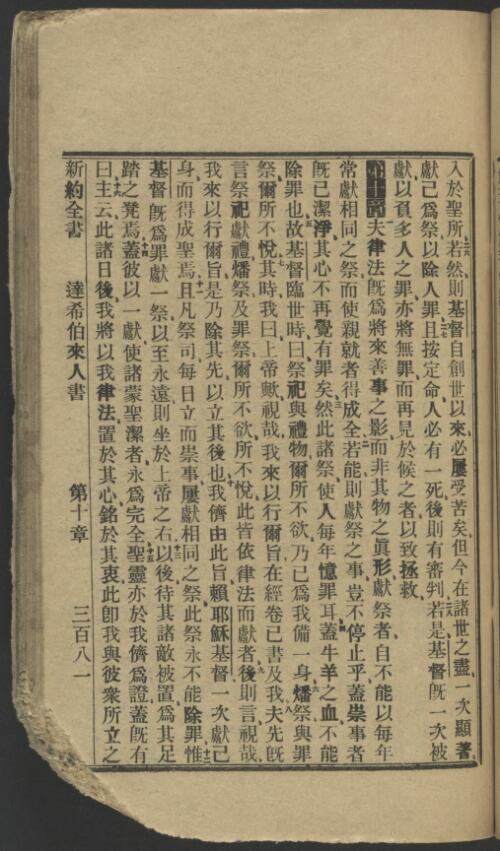 入於聖所、若然、則基督自創世以來必屢受苦矣、但今在諸世之盡、一次顯著、
獻己爲祭、以除人罪、且按定命、人必有一死、後則有審判、若是基督旣一次被
獻、以負多人之罪、亦將無罪而再見於候之者、以致拯救、
第十章 夫律法旣爲將來善事之影、而非其物之眞形、獻祭者、自不能以每年
常獻相同之祭、而使親就者得成全、若能、則獻祭之事、豈不停止乎、蓋崇事者
旣已潔淨、其心不再覺有罪矣、然此諸祭、使人每年憶罪耳、蓋牛羊之血、不能
除罪也、故基督臨世時、曰、祭祀與禮物、爾所不欲、乃已爲我備一身、燔祭與罪
祭、爾所不悅、其時我曰、上帝歟、視哉、我來以行爾旨、在經卷已書及我、夫先旣
言祭祀獻禮燔祭及罪祭、爾所不欲、所不悅、此皆依律法而獻者、後則言視哉、
我來以行爾旨、是乃除其先、以立其後也、我儕由此旨、賴耶穌基督一次獻己
身、而得成聖焉、且凡祭司、每日立而崇事、屢獻相同之祭、此祭永不能除罪、惟
基督旣爲罪獻一祭、以至永遠、則坐於上帝之右、以後待其諸敵被置爲其足
踏之凳焉、蓋彼以一獻、使諸蒙聖潔者、永爲完全、聖靈亦於我儕爲證、蓋旣有
曰、主云、此諸日後、我將以我律法、置於其心、銘於其衷、此卽我與彼衆所立之
新約全書 達希伯來人書 第十章 三百八一